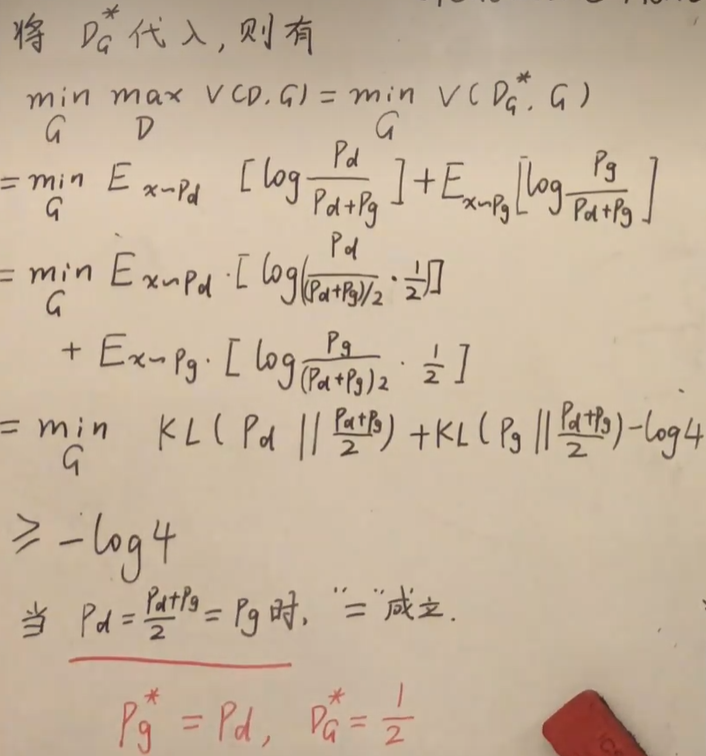 将 D_G^* 代入, 则有
min_G max_D V(D, G) = min_G V(D_G^*, G)
= min_G E_{x~Pd} [log \frac{Pd}{Pd+Pg}] + E_{x~Pg} [log \frac{Pg}{Pd+Pg}]
= min_G E_{x~Pd} · [log(\frac{Pd}{(Pd+Pg)/2} · \frac{1}{2})]
+ E_{x~Pg} · [log \frac{Pg}{(Pd+Pg)2} · \frac{1}{2}]
= min_G KL(Pd || \frac{Pd+Pg}{2}) + KL(Pg || \frac{Pd+Pg}{2}) - log4
≥ -log4
当 Pd = \frac{Pd+Pg}{2} = Pg 时, "=" 成立.
Pg^* = Pd, D_G^* = \frac{1}{2}